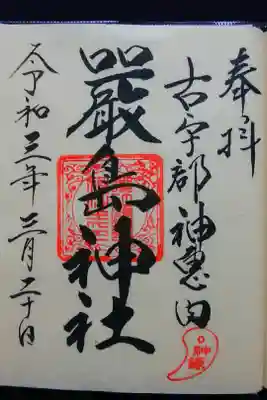 奉拝
古宇部神恵内
嚴島神社
令和三年三月二十日